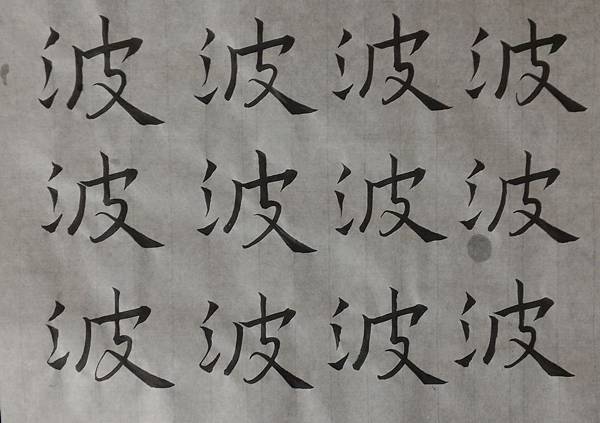 波波波波
波波波波
波波波波